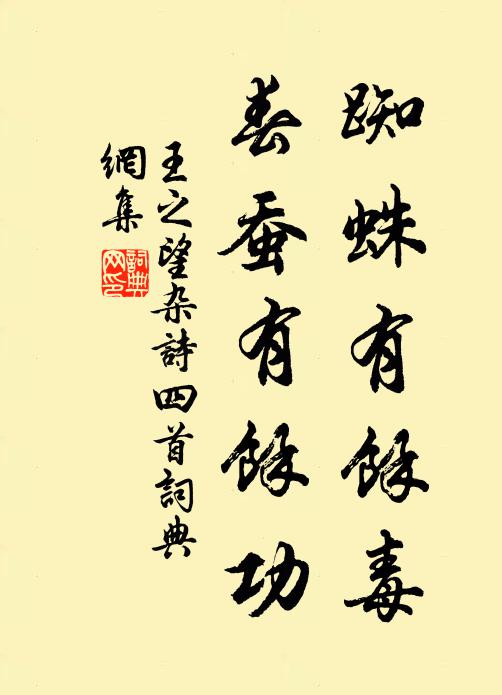 蜘蛛有餘毒
春蚕有餘功
王之望杂詩四首詞典
網集
詞典
网印